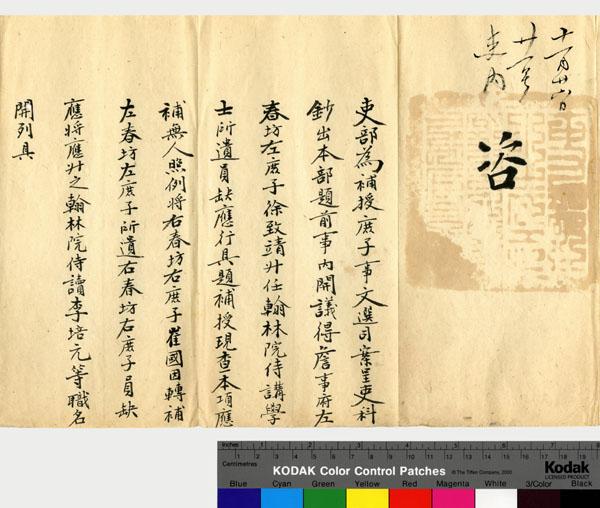 十一月廿六日
廿
吏內
咨
吏部為補授庶子事文選司案呈吏科
鈔出本部題前事內開議得詹事府左
春坊左庶子徐致靖升任翰林院侍講學
士所遺員缺應行具題補授現查本項應
補無人照例將右春坊右庶子崔國因轉補
左春坊左庶子所遺右春坊右庶子員缺
應將應升之翰林院侍讀李培元等職名
開列具
inches 1 2 3 4 5 6 7 8
Centimetres 1 2 3 4 5 6 7 8 9 10 11 12 13 14 15 16 17 18 19
KODAK Color Control Patches © The Tiffen Company, 2000 Kodak
LICENSED PRODUCT
Blue Cyan Green Yellow Red Magenta White 3/Color Black